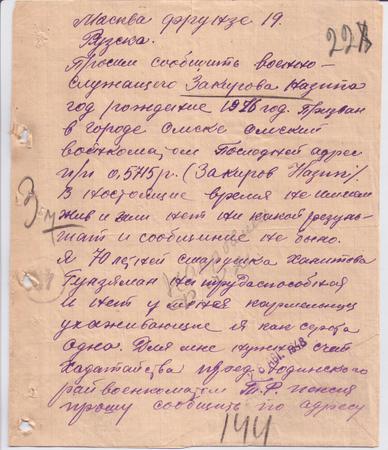 Масква фрунзе 19.
Рузска.
227
Просим сообщить военно-
служащего Закирова Назипа
год рождение 1916 год. Призван
в городе Омске омский
военкоматом Последней адрес
п/п 0,5115/г. (Закиров Назип)
В настоящие время не писем
жив и или нет ни какой резуль-
тат и сообщиние не
Я 70 летней старушка Хамитова
не трудаспособная
и нет у меня кармелица
ухаживающие я как
одна. Для мне нужна счит
хадатайства
райвоенкоматом Т.Р. пенсия
прошу сообщить по адресу
144